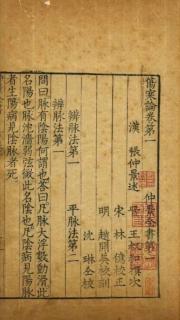 傷寒論卷第一
仲景全書第一
漢 張仲景述
晉 王叔和撰次
宋 林 億校正
明 趙開美校刻
沈 琳仝校
辨脉法第一 平脉法第二
辨脉法第一
問曰脉有陰陽何謂也荅曰凡脉大浮數動滑此
名陽也脉沈濇弱弦微此名陰也凡陰病見陽脉
者生陽病見陰脉者死